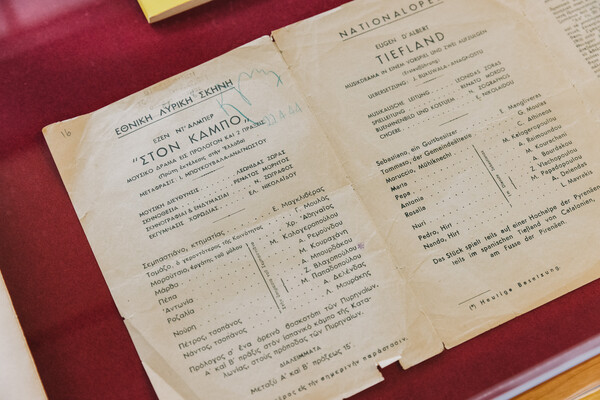 16
ΕΘΝΙΚΗ ΛΥΡΙΚΗ ΣΚΗΝΗ
22.4.44
ΕΖΕΝ ΝΤ' ΑΛΜΠΕΡ
"ΣΤΟΝ ΚΑΜΠΟ"
ΜΟΥΣΙΚΟ ΔΡΑΜΑ ΕΙΣ ΠΡΟΛΟΓΟΝ ΚΑΙ 2 ΠΡΑΞΕΙΣ
(Πρώτη ἐκτέλεσις στὴν Ἑλλάδα)
ΜΕΤΑΦΡΑΣΙΣ: Ι. ΜΠΟΥΚΟΥΒΑΛΑ-ΑΝΑΓΝΩΣΤΟΥ
ΜΟΥΣΙΚΗ ΔΙΕΥΘΥΝΣΙΣ : ΛΕΩΝΙΔΑΣ ΖΩΡΑΣ
ΣΚΗΝΟΘΕΣΙΑ : ΡΕΝΑΤΟΣ ΜΟΡΝΤΟΣ
ΣΚΗΝΟΓΡΑΦΙΑΙ & ΕΝΔΥΜΑΣΙΑΙ : ΣΩ. ΖΩΓΡΑΦΟΣ
ΕΚΓΥΜΝΑΣΙΣ ΧΟΡΩΔΙΑΣ : ΕΛ. ΝΙΚΟΛΑΪΔΟΥ
Σεμπαστιάνο, κτηματίας Ε. Μαγκλιβέρας
Τομάζο, ὁ γεροντότερος τῆς Κοινότητος Γ. Μουλᾶς
Μορούτσιο, ἐργάτης τοῦ μύλου Χρ. Ἀθηναῖος
Μάρθα Μ. Καλογεροπούλου
Πέπα Α. Ρεμούνδου
Ἀντωνία Μ. Κουαχάνη
Ροζαλία Α. Μπουρδάκου
Νούρη Ζ. Βλαχοπούλου
Μ. Παπαδοπούλου
Πέτρος, τσοπάνος Α. Δελένδας
Νάντος, τσοπάνος Λ. Μαυράκης
Πρόλογος σ' ἕνα ὀρεινὸ βοσκοτόπι τῶν Πυρηναίων,
Α' καὶ Β' πρᾶξις στὸν ἱσπανικὸ κάμπο τῆς Κατα-
λωνίας, στοὺς πρόποδας τῶν Πυρηναίων.
ΔΙΑΛΕΙΜΜΑΤΑ
Μεταξὺ Α' καὶ Β' πράξεως 15'
εἰς τὴν σημερινὴν παράστασιν.
NATIONALOPE
EUGEN D'ALBERT
TIEFLAND
MUSIKDRAMA IN EINEM VORSPIEL UND ZWEI AUFZUGEN
(Erstaufführung)
UEBERSETZUNG : J. BUKUWALA-ANAGNOSTU
MUSIKALISCHE LEITUNG : LEONIDAS ZORAS
SPIELLEITUNG : RENATO MORDO
BUEHNENBILD UND KOSTUEM : S. ZOGRAFOS
CHOERE : E. NIKOLAIDOU
Sebastiano, ein Gutsbesitzer E. Mangliveras
Tommaso, der Gemeindeälteste G. Moulas
Moruccio, Mühlknecht C. Athineos
Marta M. Kalogeropoulou
Pepa A. Remoundou
Antonia M. Kourachani
Rosalia A. Bourdakou
Nuri Z. Vlachopoulou
M. Papadopoulou
Pedro, Hirt A. Delendas
Nando, Hirt L. Mavrakis
Das Stück spielt teils auf einer Hochalpe der Pyrenäen
teils im spanischen Tiefland von Catalonien,
am Fusse der Pyrenäen.
(*) Heutige Besetzung.